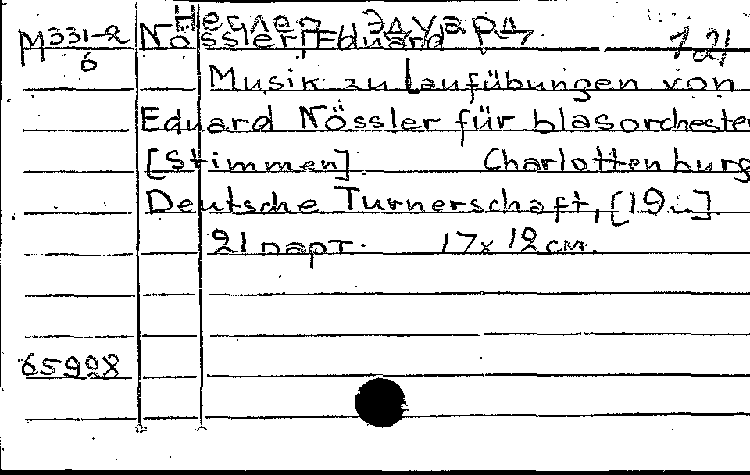 Эдуард
М 331-2 Nössler, Eduard 121
6
Musik zu Laufübungen von
Eduard Nössler für blasorchester
[Stimmen] Charlottenburg
Deutsche Turnerschaft, [19..].
21 парт. 17x12 см.
65998